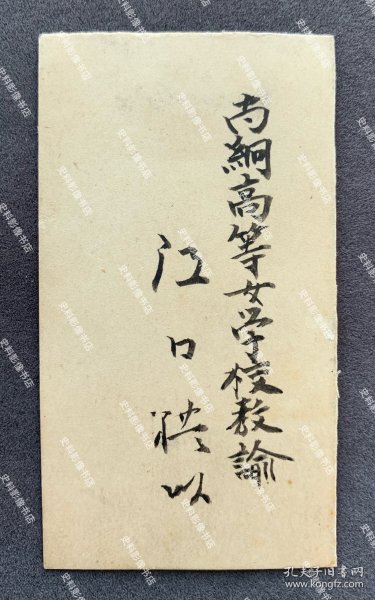 尚絅高等女学校教諭
江口以
史料影像书店
孔夫子旧书网
www.kongfz.com